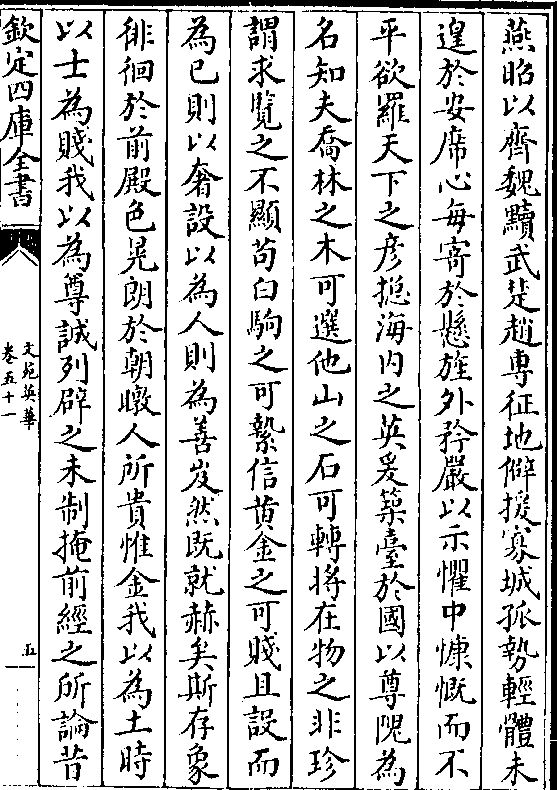 燕昭以齊魏黷武楚趙專征地僻援寡城孤勢輕體未
遑於安席心每寄於懸旌外矜嚴以示懼中慷慨而不
平欲羅天下之彦摠海内之英爰築臺於國以尊隗為
名知夫喬林之木可選他山之石可轉將在物之非珍
謂求覽之不顯苟白駒之可縶信黄金之可賤且設而
為已則以奢設以為人則為善岌然既就赫矣斯存象
徘徊於前殿色晃朗於朝暾人所貴惟金我以為土時
以士為賤我以為尊誠列辟之未制掩前經之所論昔
欽定四庫全書
文苑英華
卷五十一
五